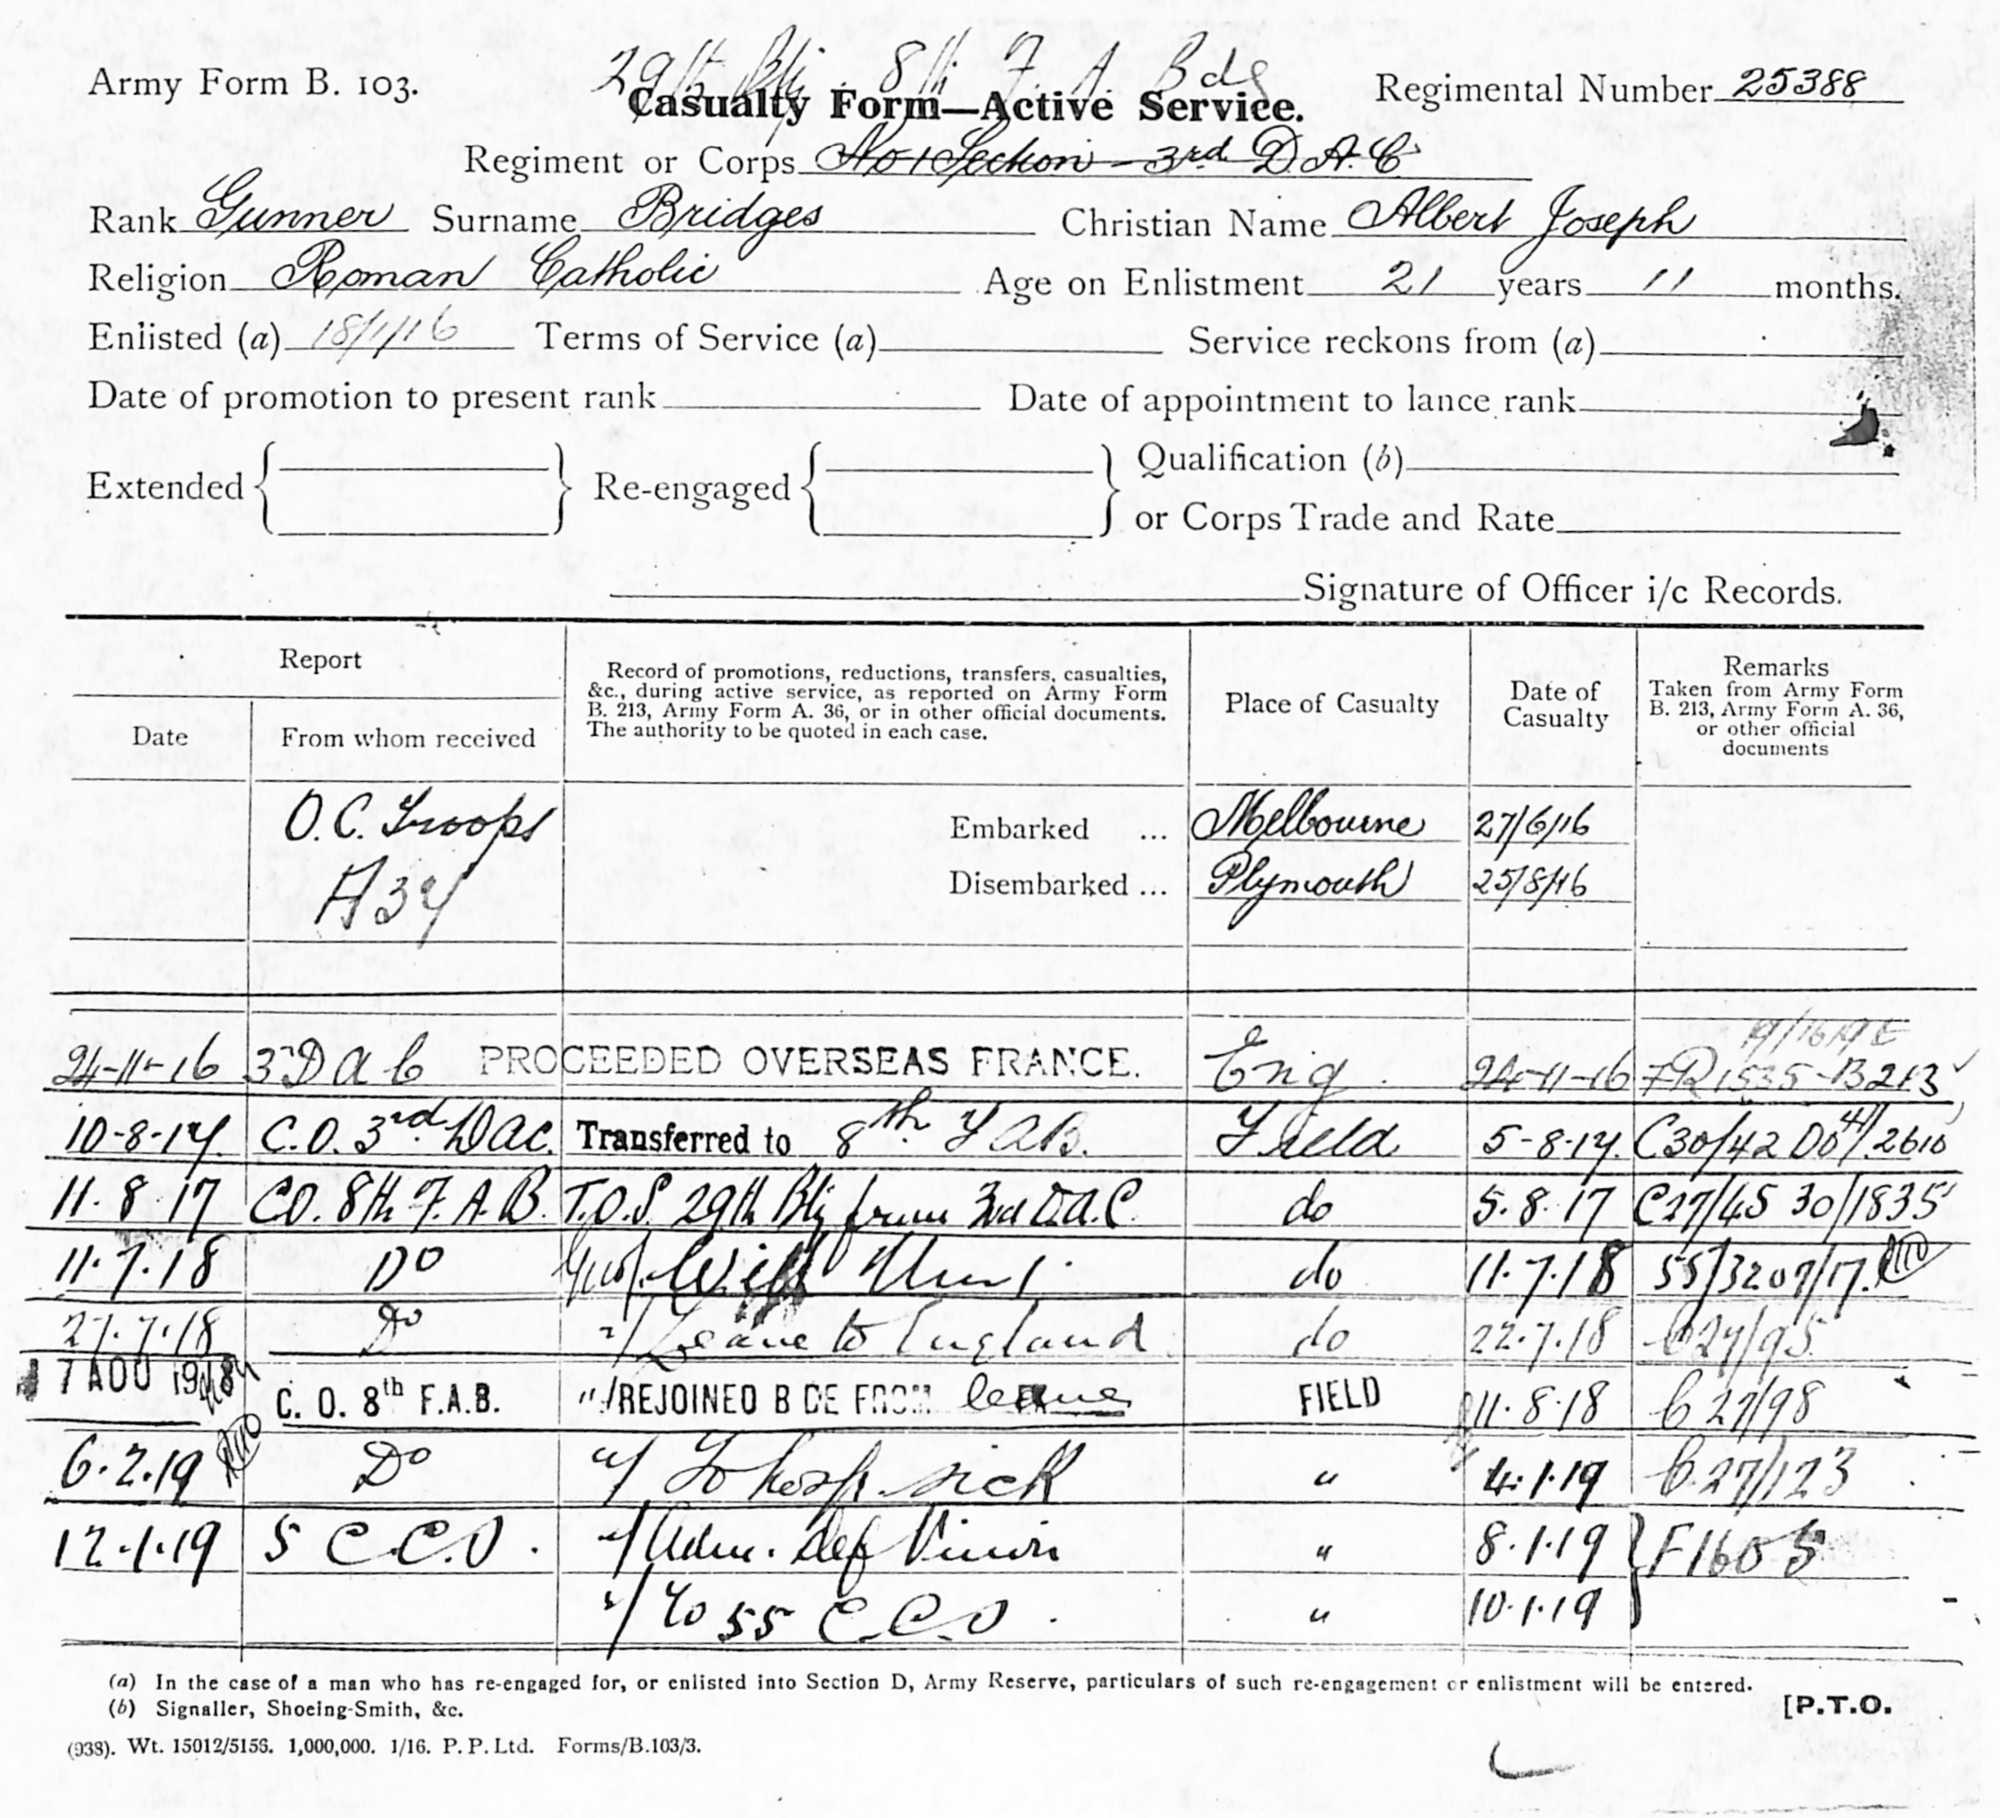 29th Bty. 8th F. A. Bde
Army Form B. 103.
Casualty Form—Active Service.
Regimental Number 25388
Regiment or Corps No 1 Section - 3rd D.A.C
Rank Gunner Surname Bridges Christian Name Albert Joseph
Religion Roman Catholic Age on Enlistment 21 years 11 months.
Enlisted (a) 18/1/16 Terms of Service (a) Service reckons from (a)
Date of promotion to present rank Date of appointment to lance rank
Extended Re-engaged Qualification (b)
or Corps Trade and Rate
Signature of Officer i/c Records.
Report
Date
From whom received
Record of promotions, reductions, transfers, casualties,
&c., during active service, as reported on Army Form
B. 213, Army Form A. 36, or in other official documents.
The authority to be quoted in each case.
Place of Casualty
Date of
Casualty
Remarks
Taken from Army Form
B. 213, Army Form A. 36,
or other official
documents
O.C. Troops Embarked ... Melbourne 27/6/16
A34 Disembarked ... Plymouth 25/8/16
24-11-16 3 D A C PROCEEDED OVERSEAS FRANCE. Eng. 24-11-16 1535-B213
10-8-17. C.O. 3rd DAC. Transferred to 8th F A B. Field 5-8-17. C30/42 DO 41/2610
11.8.17 C.O. 8th F.A.B. T.O.S. 29th Bty from 3rd D.A.C. do 5.8.17 C27/45 30/1835
11.7.18 Do do 11.7.18 55/3207/17.
27.7.18 Do "/ Leave to England do 22.7.18 C27/95
7 AOU 1918 C. O. 8th F.A.B. "/ REJOINED BDE FROM leave FIELD 11.8.18 C 27/98
6.2.19 Do "/ To hosp sick " 4.1.19 C.27/123
12.1.19 5 C.C.S. "/ Adm. Def Vision " 8.1.19 F1605
"/ To 55 C.C.S. " 10.1.19
(a) In the case of a man who has re-engaged for, or enlisted into Section D, Army Reserve, particulars of such re-engagement or enlistment will be entered.
(b) Signaller, Shoeing-Smith, &c.
[P.T.O.
(938). Wt. 15012/5156. 1,000,000. 1/16. P. P. Ltd. Forms/B.103/3.